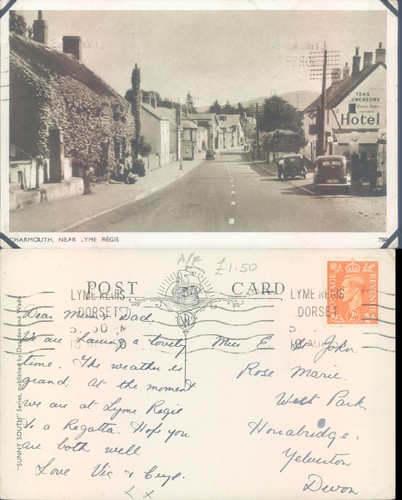 TEAS
LUNCHEONS
Hotel
CHARMOUTH, NEAR LYME REGIS
780
A/F
£1.50
POST CARD
LYME REGIS
DORSET
LYME REGIS
DORSET
POSTAGE
REVENUE
"SUNNY SOUTH" Series, published by Dearden and Wade
Dear Mum & Dad.
We are having a lovely
time. The weather is
grand. At the moment
we are at Lyme Regis
to a Regatta. Hope you
are both well
Love Vic &
x x
E. St. John
Rose Marie.
West Park,
Horrabridge,
Yelverton
Devon